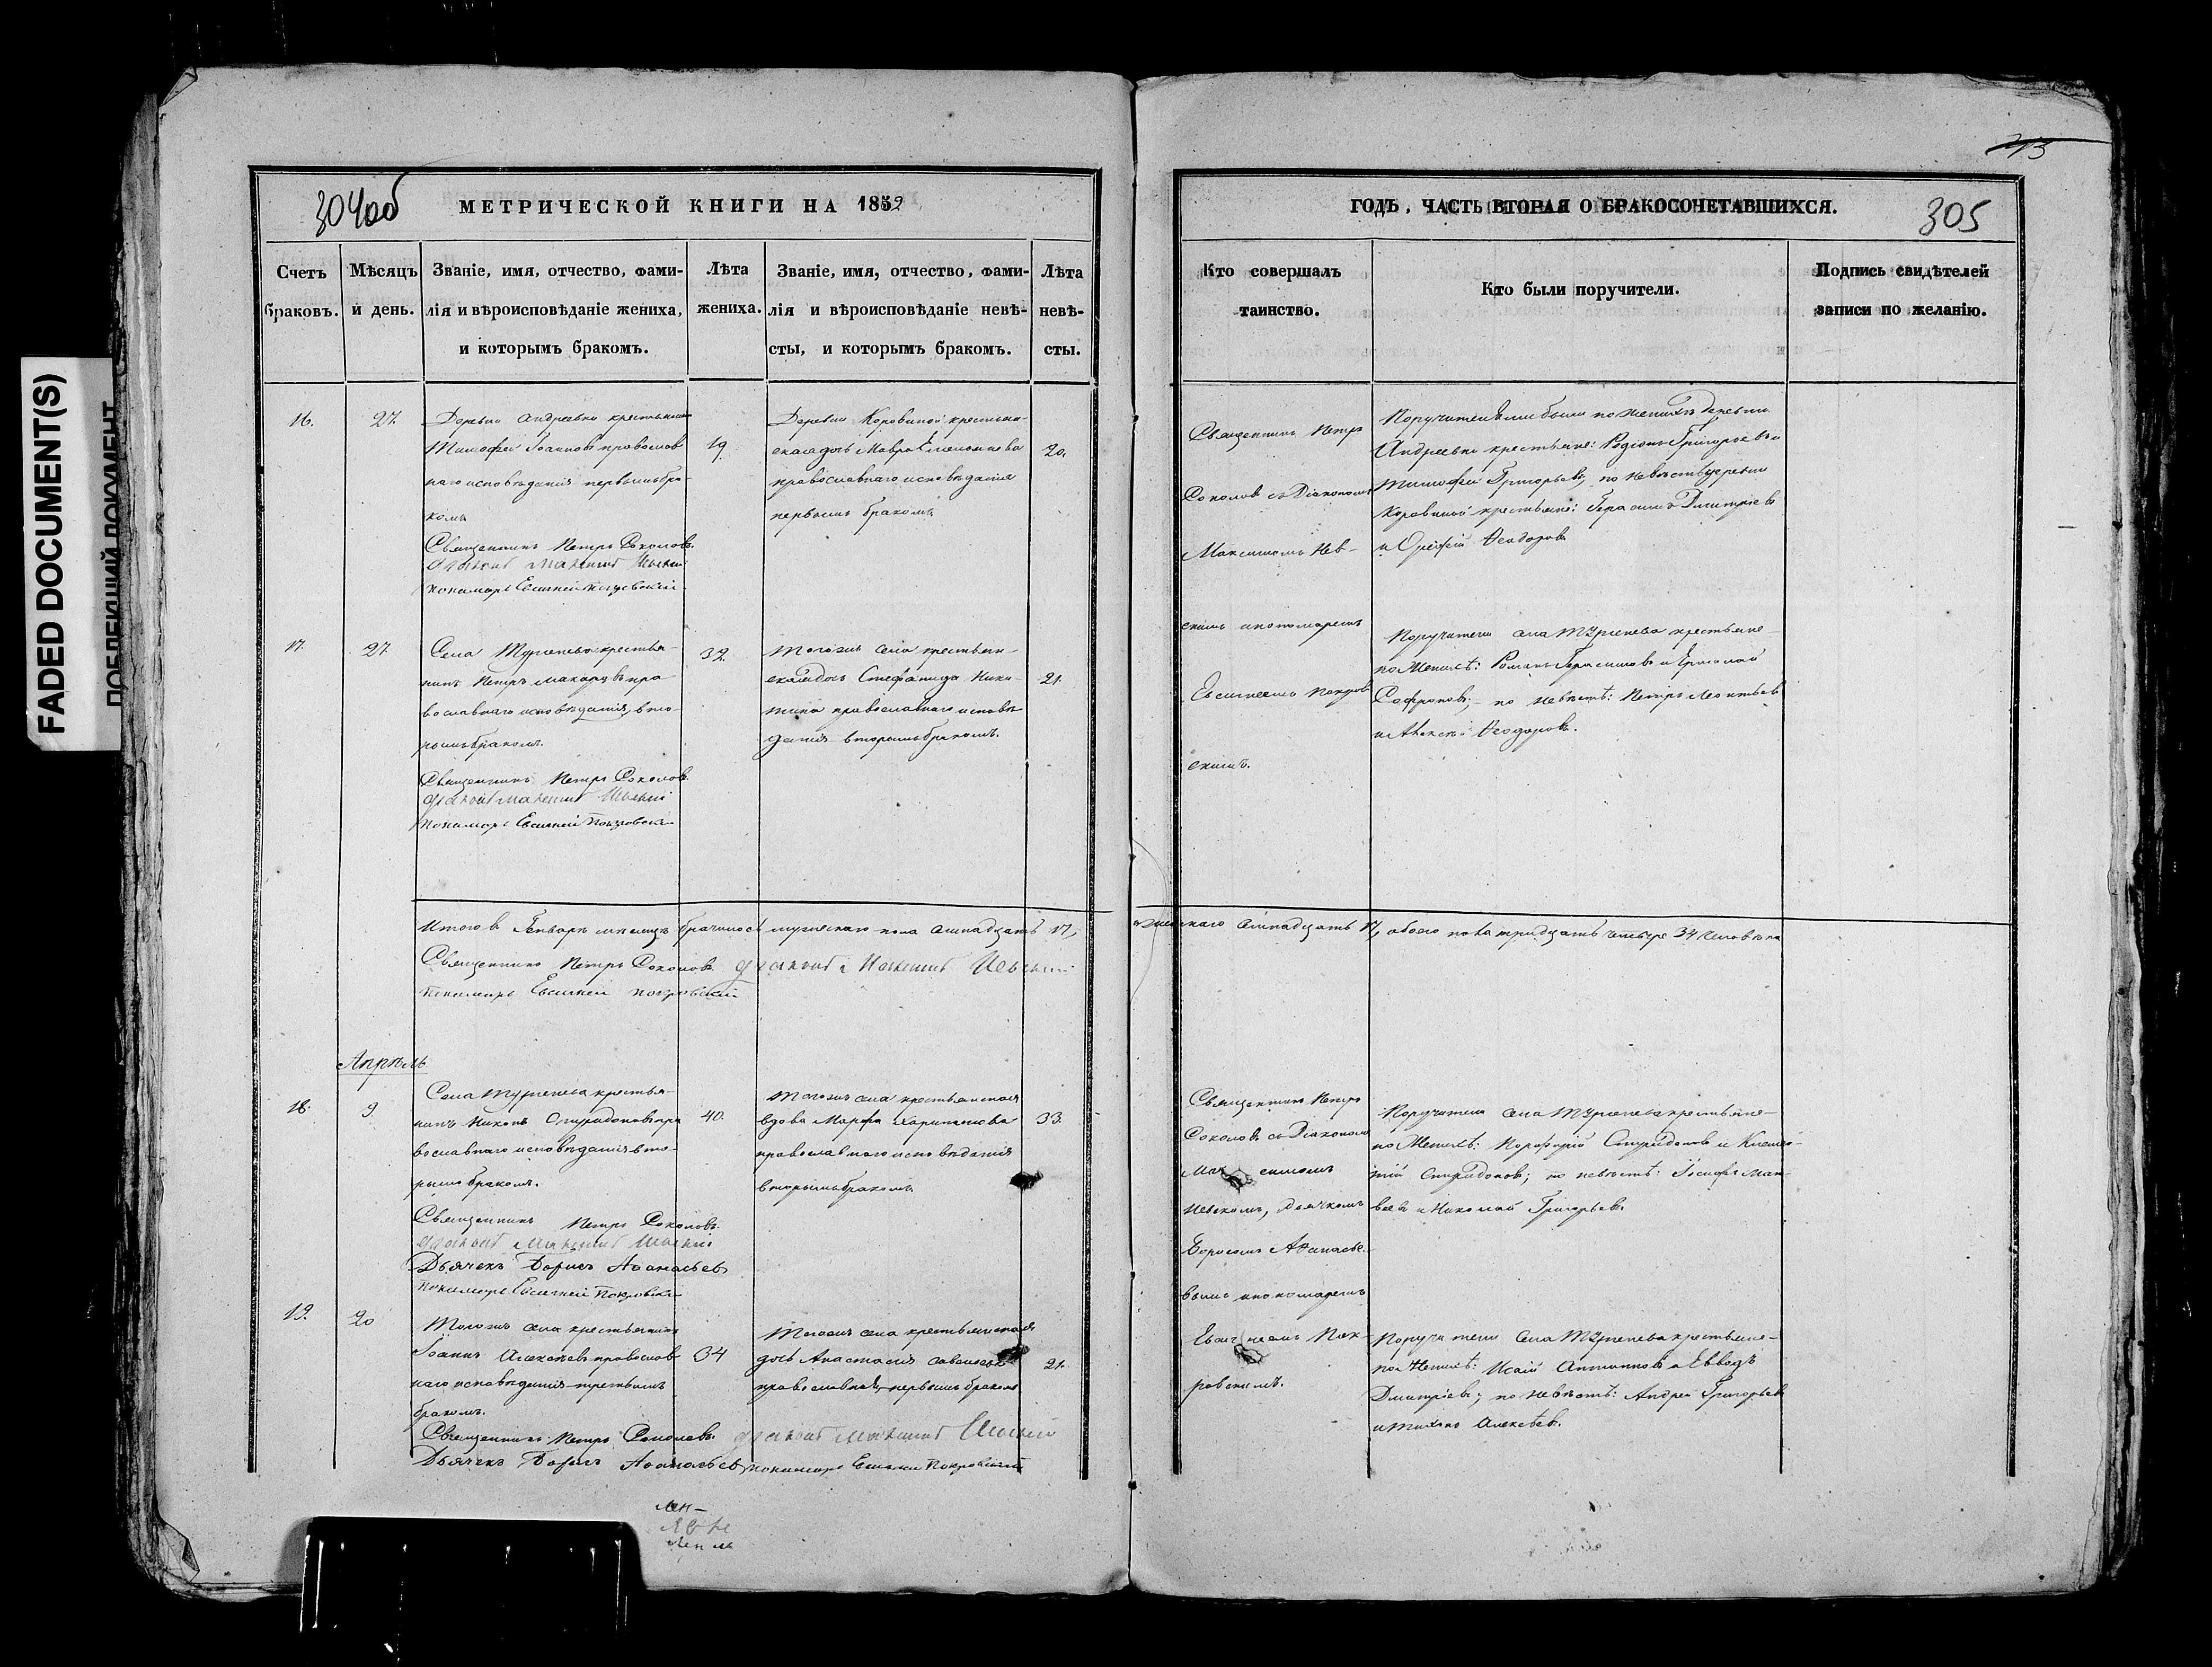 FADED DOCUMENT(S)
304об
МЕТРИЧЕСКОЙ КНИГИ НА 1859
Счетъ браковъ.
Мѣсяцъ и день.
Званіе, имя, отчество, фами-
лія и вѣроисповѣданіе жениха,
и которымъ бракомъ.
Лѣта жениха.
Званіе, имя, отчество, фами-
лія и вѣроисповѣданіе невѣ-
сты, и которымъ бракомъ.
Лѣта невѣ-
сты.
16.
27.
Деревни Андреевки крестьянинъ
Тимофей Іоанновъ православ
наго исповѣданія первымъ бра-
комъ
Священникъ Петръ Соколовъ
Діаконъ Максимъ Невскій
Пономарь Евсигней Покровскій
19.
Деревни Коровиной крестьян-
ская дочь Мавра Емельянова
православнаго исповѣданія
первымъ бракомъ
20.
17.
27.
Села Тургенева крестья-
нинъ Петръ Макаровъ пра
вославнаго исповѣданія, вто-
рымъ бракомъ.
Священникъ Петръ Соколовъ
Діаконъ Максимъ Невскій
Пономарь Евсигней Покровскій
32.
Тогожъ села крестьян-
ская дочь Стефанида Ники-
тина православнаго исповѣ
данія вторымъ бракомъ.
21.
Итого в Генварѣ мѣсяцѣ брачилось мужескаго пола семнадцать 17,
Священникъ Петръ Соколовъ Діаконъ Максимъ Невскій
Пономарь Евсигней Покровскій
Апрѣль
18.
9
Села Тургенева крестья-
нинъ Никонъ Спиридоновъ пра
вославнаго исповѣданія вто-
рымъ бракомъ.
Священникъ Петръ Соколовъ
Діаконъ Максимъ Невскій
Дьячекъ Борисъ Аѳанасьевъ
Пономарь Евсигней Покровскій
40.
Тогожъ села крестьянская
вдова Марѳа Харитонова
православнаго исповѣданія
вторымъ бракомъ
33.
19.
20
Тогожъ села крестьянинъ
Іоаннъ Алексѣевъ православ
наго исповѣданія третьимъ
бракомъ.
34
Тогожъ села крестьянская
дочь Анастасія
православная, первымъ бракомъ
21.
Священникъ Петръ Соколовъ Діаконъ Максимъ Невскій
Дьячекъ Борисъ Аѳанасьевъ Пономарь Евсигней Покровскій
305
ГОДЪ, ЧАСТЬ ВТОРАЯ О БРАКОСОЧЕТАВШИХСЯ.
Кто совершалъ
таинство.
Кто были поручители.
Подпись свидѣтелей
записи по желанію.
Священникъ Петръ
Соколовъ съ Діакономъ
Максимомъ Нев-
скимъ и пономаремъ
Евсигнеемъ Покров
скимъ.
Поручителями были по женихѣ деревни
Андреевки крестьяне: Родіонъ Григорьевъ и
Тимофей Григорьевъ, по невѣстѣ деревни
Коровиной крестьяне: Герасимъ Дмитріевъ
и Ѳеодоровъ
Поручители села Тургенева крестьяне-
по женихѣ: Романъ Герасимовъ и Ермолай
Софроновъ; по невѣстѣ: Петръ Леонтьевъ
и Алексѣй Ѳеодоровъ.
и женскаго семнадцать 17, обоего пола тридцать четыре 34 человѣка
Священникъ Петръ
Соколовъ съ Діакономъ
Максимомъ
Невскимъ, Дьячкомъ
Борисомъ Аѳанасье-
вымъ и пономаремъ
Евсигнеемъ Пок-
ровскимъ.
Поручители села Тургенева крестьяне-
по женихѣ: Порфирій Спиридоновъ и
Спиридоновъ; по невѣстѣ: Іосифъ Мат-
веевъ и Николай Григорьевъ.
Поручители села Тургенева крестьяне-
по женихѣ: Исай Антиповъ и
Дмитріевъ; по невѣстѣ: Андрей Григорьевъ
и Тихонъ Алексѣевъ.